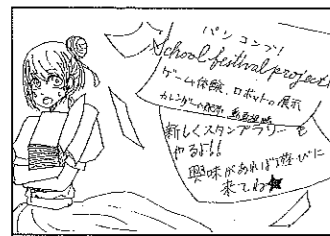 パソコンブ!
School festival project
ゲーム体験、ロボットの展示
カレンダーの配布
新しくスタンプラリーを
やるよ!!
興味があれば遊びに
来てね★